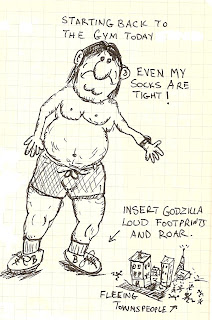 STARTING BACK TO
THE GYM TODAY
EVEN MY
SOCKS ARE
TIGHT!
INSERT GODZILLA
LOUD FOOTPRINTS
AND ROAR.
FLEEING
TOWNSPEOPLE